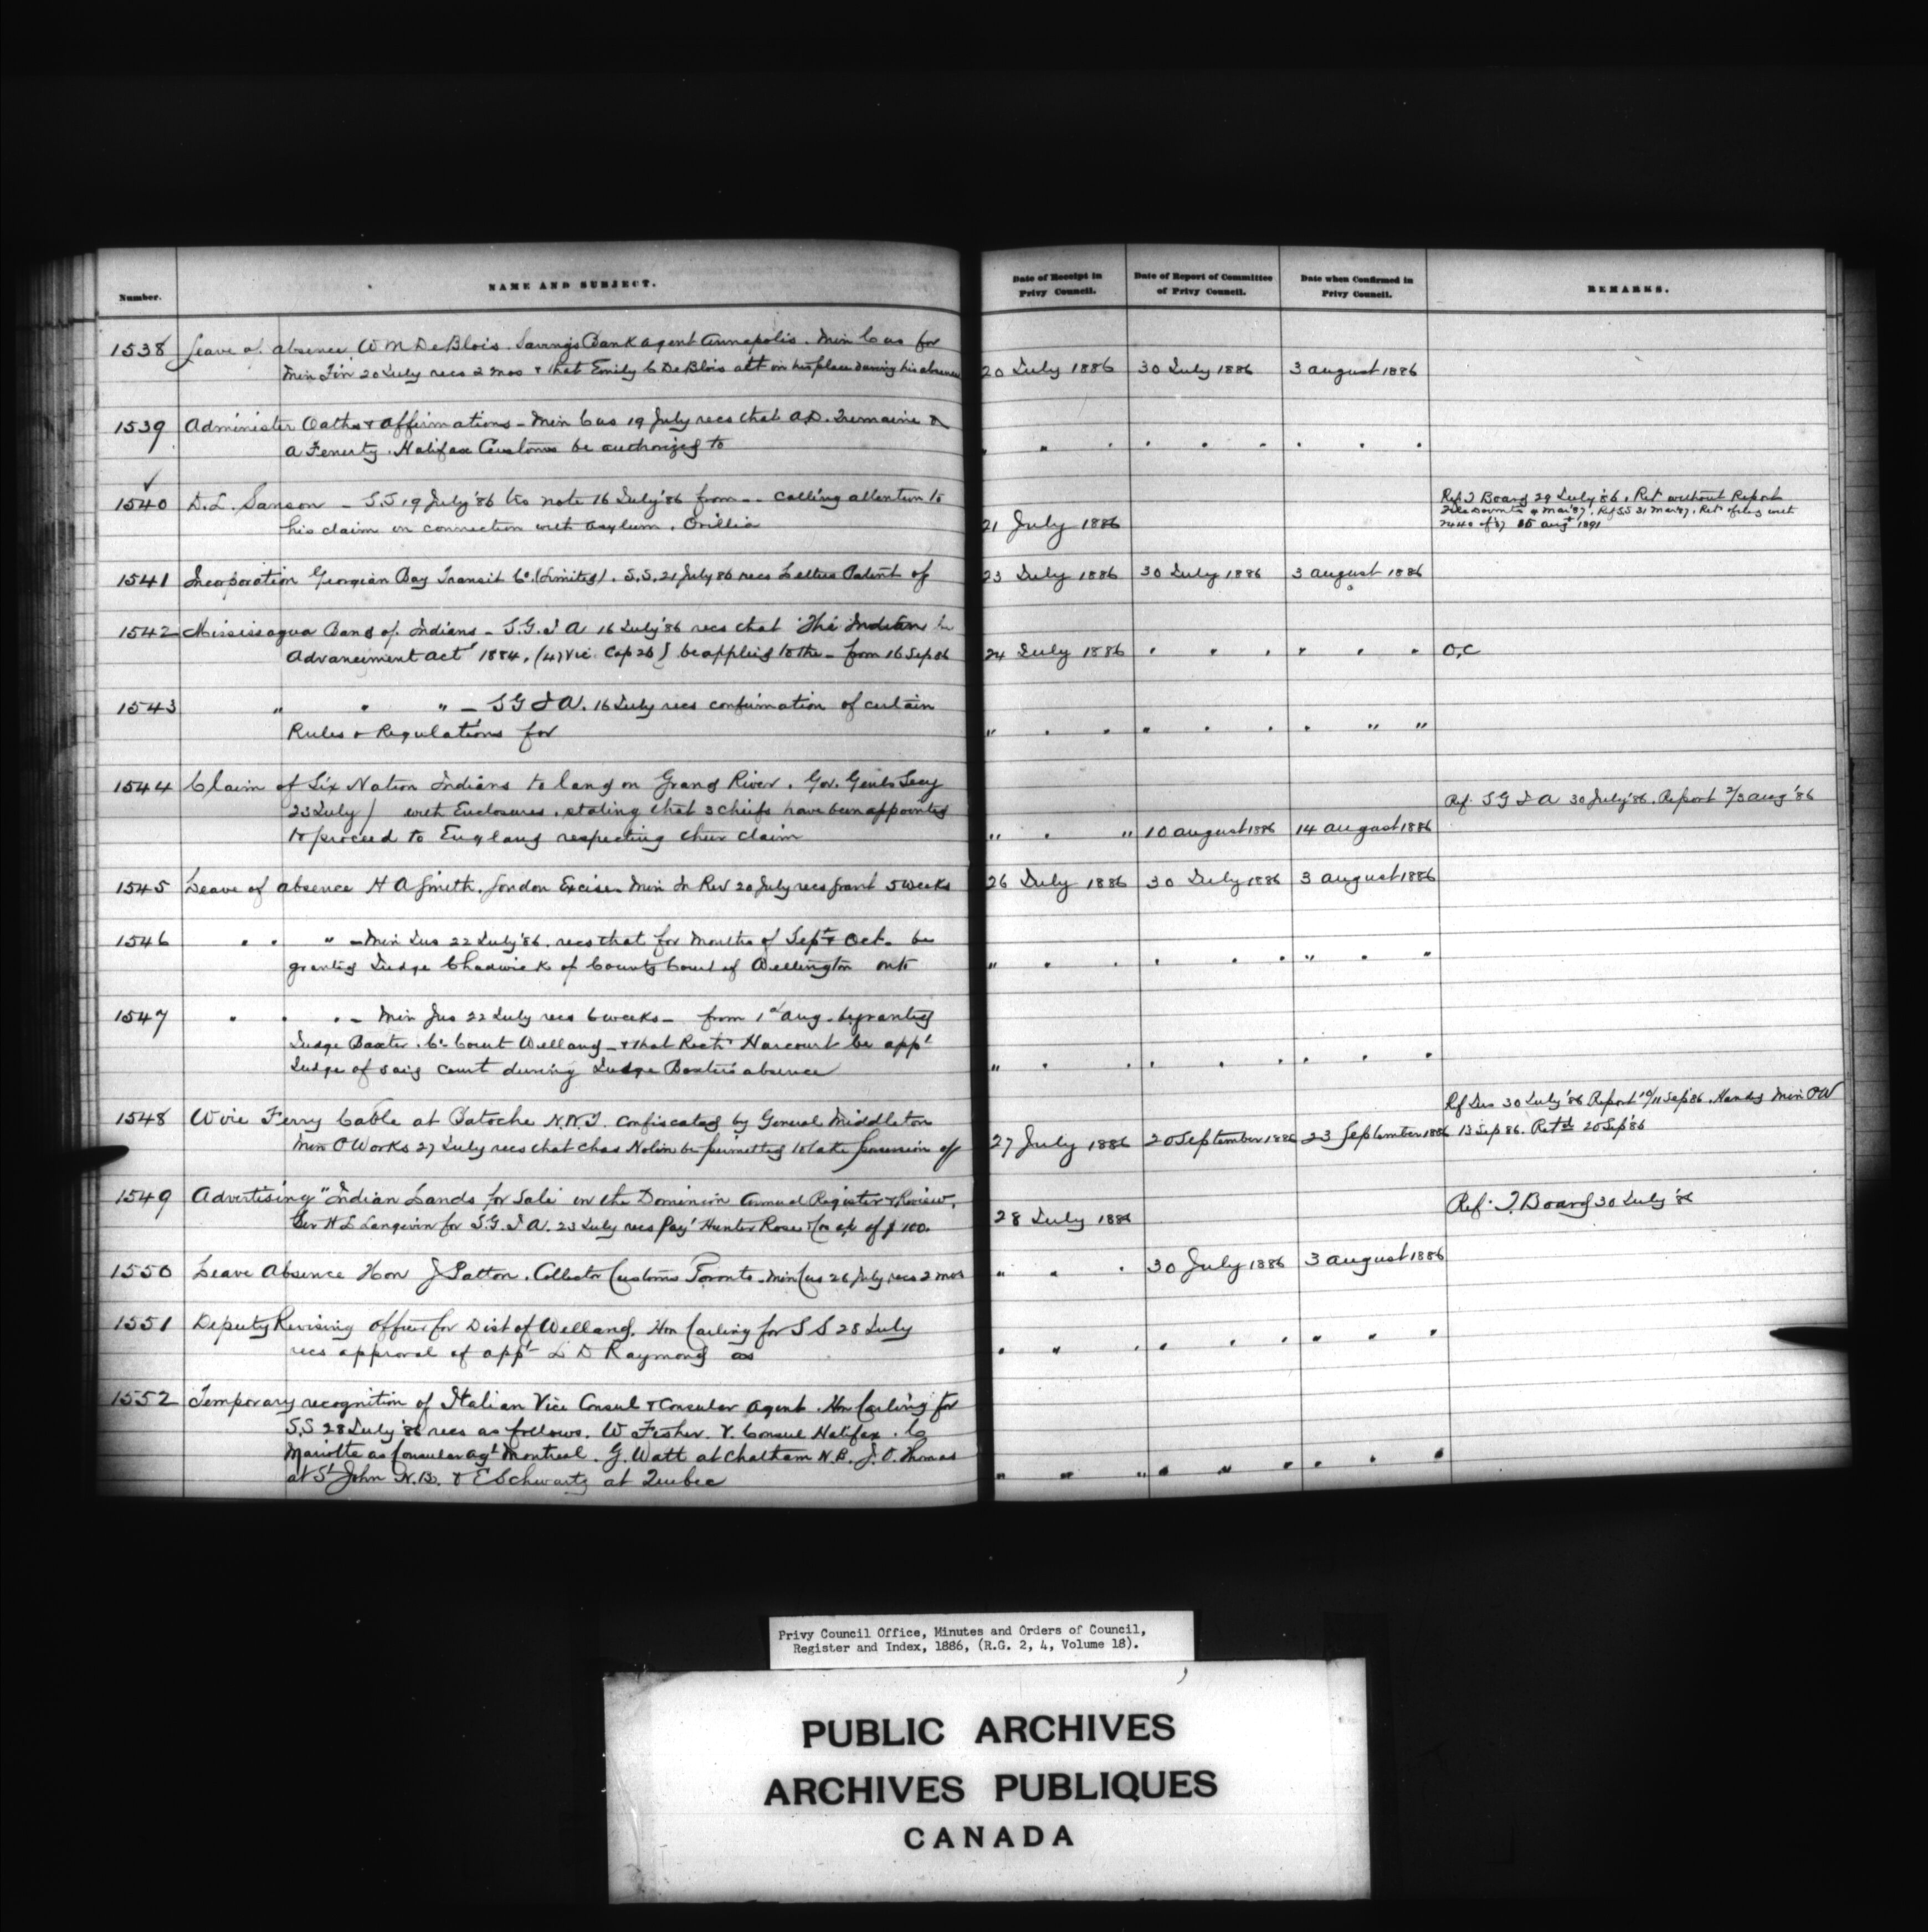 Number.
NAME AND SUBJECT.
Date of Receipt in Privy Council.
Date of Report of Committee of Privy Council.
Date when Confirmed in Privy Council.
REMARKS.
1538 Leave of absence W M DeBlois. Savings Bank agent Annapolis. Min Cus for
Min Fin 20 July recs 2 mos & that Emily C DeBlois act in his place during his absence 20 July 1886 30 July 1886 3 august 1886
1539 Administer Oaths & Affirmations - Min Cus 19 July recs that A.D. Tremaine &
A Fenerty. Halifax Customs be authorized to " " " " " " " " "
1540 D. L. Sanson - S.S 19 July '86 note 16 July '86 from - calling attention to
his claim in connection with asylum. Orillia 21 July 1886
Ref. T Board 29 July '86. Ret without Report
4 Mar '87. Ref SS 31 Mar '87. Ret
of 87 aug 1891
1541 Incorporation Georgian Bay Transit Co. (Limited). S.S. 21 July 86 recs Letters Patent of 23 July 1886 30 July 1886 3 august 1886
1542 Mississagua Band of Indians - S.G.I A 16 July '86 recs that "The Indian
Advancement Act" 1884, (47 Vic Cap 28) be applied to the - from 16 Sep 86 24 July 1886 " " " " " " O.C
1543 " " " - S G I A. 16 July recs confirmation of certain
Rules & Regulations for " " " " " " " " "
1544 Claim of Six Nation Indians to land on Grand River. Gov. Genls Secy
23 July / with Enclosures. stating that 3 chiefs have been appointed
to proceed to England respecting their claim " " " 10 august 1886 14 august 1886
Ref. S G I A 30 July '86. Report 2/3 aug '86
1545 Leave of absence H A Smith. London Excise - Min In Rev 20 July recs grant 5 weeks 26 July 1886 30 July 1886 3 august 1886
1546 " " " - Min Jus 22 July '86. recs that for months of Sept & Oct. be
granted Judge Chadwick of County Court of Wellington Ont " " " " " " " " "
1547 " " " - Min Jus 22 July recs 6 weeks - from 1st aug. be granted
Judge Baxter. Co. Court Welland - & that Richd Harcourt be appt
Judge of said court during Judge Baxter's absence " " " " " " " " "
1548 Wire Ferry Cable at Batoche N.W.T. confiscated by General Middleton
Min P Works 27 July recs that Chas Nolin be permitted to take possession of 27 July 1886 20 September 1886 23 September 1886
Ref Jus 30 July '86 Report 10/11 Sep 86. Handed Min PW
13 Sep 86. Retd 20 Sep '86
1549 Advertising "Indian Lands for Sale" in the Dominion Annual Register & Review.
Sir H L Langevin for S.G.I A. 23 July recs Payt Hunter Rose & Co a/c of $100. 28 July 1886
Ref. T. Board 30 July '86
1550 Leave Absence Hon J Patton. Collector Customs Toronto - Min Cus 26 July, recs 2 mos " " " 30 July 1886 3 august 1886
1551 Deputy Revising officer for Dist of Welland. Hon Carling for S S 28 July
recs approval of appt L D Raymond as " " " " " " " " "
1552 Temporary recognition of Italian Vice Consul & Consular Agent. Hon Carling for
S.S 28 July '86 recs as follows. W Fisher. V. Consul Halifax. C
Mariotte as Consular Agt Montreal. G. Watt at Chatham N.B. J. O. Thomas
at St John N.B. & E Schwartz at Quebec " " " " " " " " "
Privy Council Office, Minutes and Orders of Council,
Register and Index, 1886, (R.G. 2, 4, Volume 18).
PUBLIC ARCHIVES
ARCHIVES PUBLIQUES
CANADA